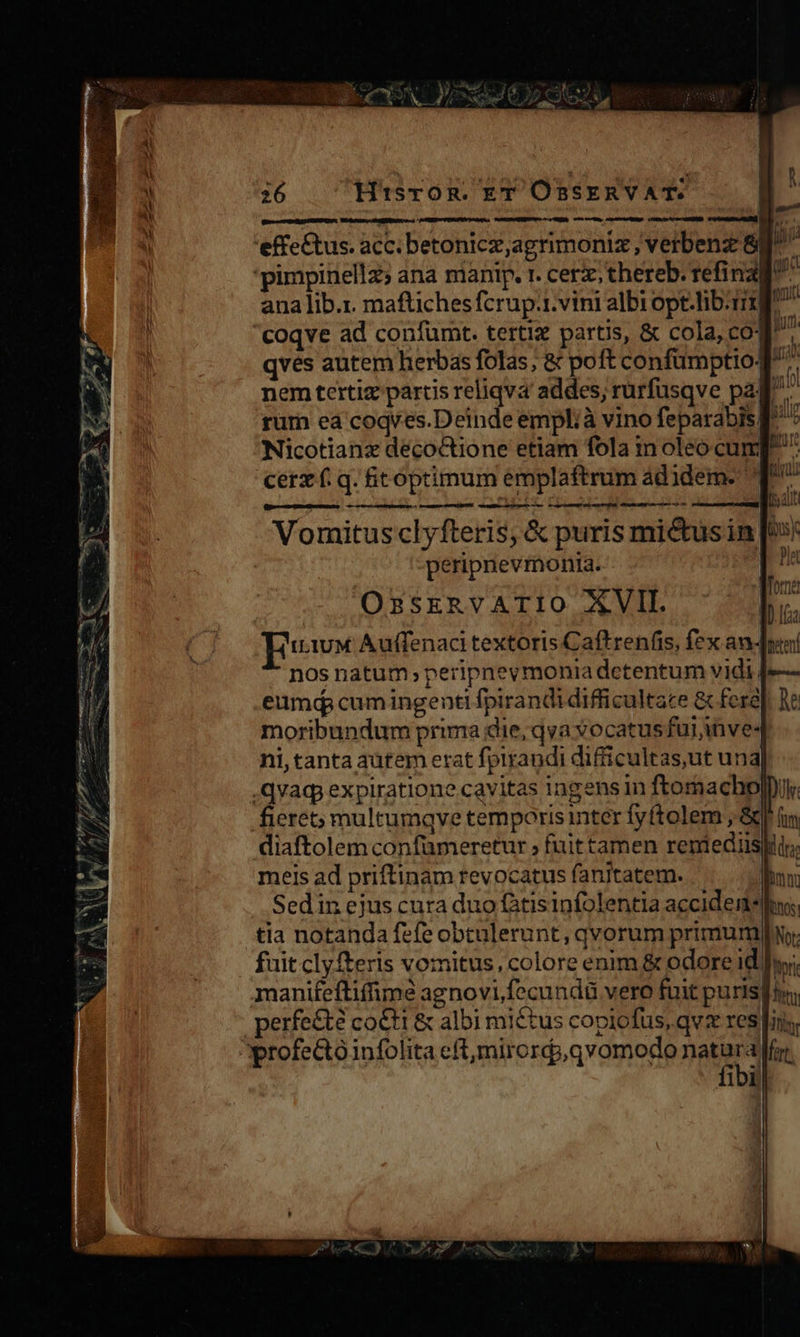 26 HISTOR. ET OBSERVAT.
effectus. acc. betonicæ, agrimoniæ, verbenæ &
pimpinellæ; ana manip. 1. ceræ, thereb. resinæ
ana lib. 1. mastiches scrup. 1. vini albi opt. lib. iii
coqve ad consumt. tertiæ partis, & cola, co-
qves autem herbas solas, & post consumptio-
nem tertiæ partis reliqva addes, rursusqve pa-
rum ea coqves. Deinde empl; à vino separabis
Nicotianæ decoctione etiam sola in oleo cum
ceræ s. q. fit optimum emplastrum ad idem.
Vomitus clysteris, & puris mictus in
peripnevmonia.
OBSERVATIO XVII.
FILIUM Aussenaci textoris Castrensis, sex an-
nos natum, peripnevmonia detentum vidi
eumq; cum ingenti spirandi difficultate & ferè
moribundum prima die, qva vocatus fui, inve-
ni, tanta autem erat spirandi difficultas, ut una
qvaq; expiratione cavitas ingens in stomacho
fieret; multumqve temporis inter systolem, &
diastolem consumeretur, fuit tamen remediis
meis ad pristinam revocatus sanitatem.
Sed in ejus cura duo satis insolentia acciden-
tia notanda sese obtulerunt, qvorum primum
fuit clysteris vomitus, colore enim & odore id
manifestissimè agnovi, secundū vero fuit puris
perfectè cocti & albi mictus copiosus, qvæ res
profectò insolita est, mirorq;, qvomodo natura
sibi